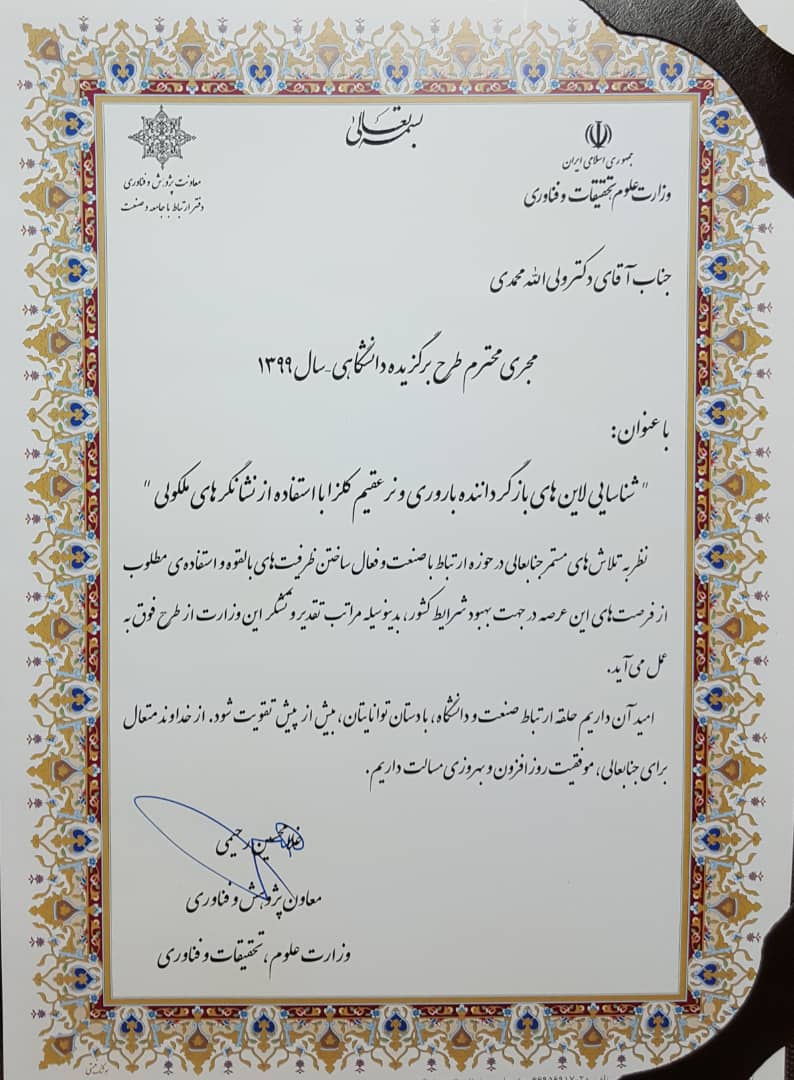 بسمه تعالی
جمهوری اسلامی ایران
وزارت علوم تحقیقات و فناوری
معاونت پژوهش و فناوری
دفتر ارتباط با جامعه و صنعت
جناب آقای دکتر ولی الله محمدی
مجری محترم طرح برگزیده دانشگاهی - سال ۱۳۹۹
با عنوان:
" شناسایی لاین های بازگرداننده باروری و نر عقیم کلزا با استفاده از نشانگرهای ملکولی "
نظر به تلاش های مستمر جنابعالی در حوزه ارتباط با صنعت و فعال ساختن ظرفیت های بالقوه و استفاده ی مطلوب
از فرصت های این عرصه در جهت بهبود شرایط کشور، بدینوسیله مراتب تقدیر و تشکر این وزارت از طرح فوق به
عمل می آید.
امید آن داریم حلقه ارتباط صنعت و دانشگاه، با دستان توانایتان، بیش از پیش تقویت شود. از خداوند متعال
برای جنابعالی، موفقیت روز افزون و بهروزی مسالت داریم.
غلامحسین رحیمی
معاون پژوهش و فناوری
وزارت علوم، تحقیقات و فناوری